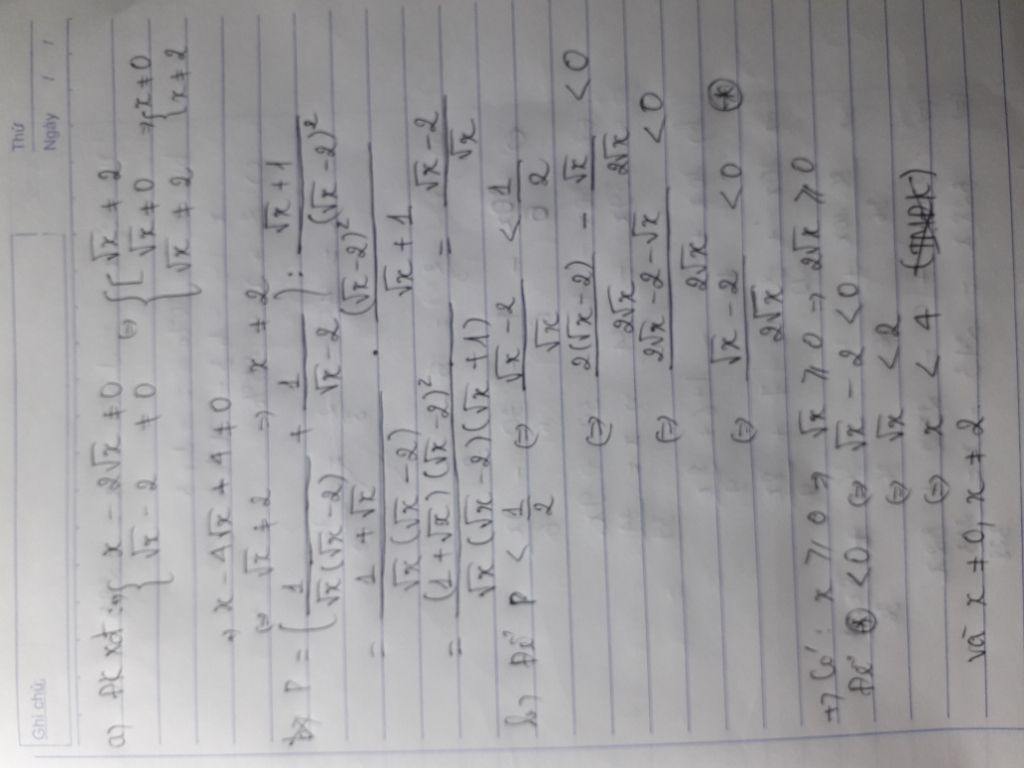 Ghi chú:
Thứ
Ngày / /
a) ĐK xác định { x - 2√x ≠ 0 ⇔ { [ √x ≠ 2
√x - 2 ≠ 0 √x ≠ 0 → { x ≠ 0
√x ≠ 2 x ≠ 2
→ x - 4√x + 4 ≠ 0
⇔ √x ≠ 2 → x ≠ 2
P = ( 1/(√x(√x - 2)) + 1/(√x - 2) ) : (√x + 1)/(√x - 2)²
= (1 + √x)/(√x(√x - 2)) . (√x - 2)²/(√x + 1)
= (1 + √x)(√x - 2)²/(√x(√x - 2)(√x + 1)) = (√x - 2)/√x
b, Để P < 1/2 ⇔ (√x - 2)/√x < 1/2
⇔ 2(√x - 2)/2√x - √x/2√x < 0
⇔ (2√x - 2 - √x)/2√x < 0
⇔ (√x - 2)/2√x < 0 (*)
+) Có: x ⩾ 0 → √x ⩾ 0 → 2√x ⩾ 0
Để (*) < 0 ⇔ √x - 2 < 0
⇔ √x < 2
⇔ x < 4
và x ≠ 0, x ≠ 2